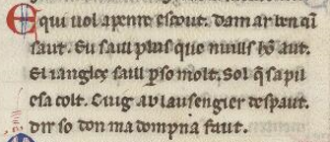 E qui uol apenre escout. Dam ar ben q̃i
saut. Eu saui plus que nuills hõ aut.
El iangleç saui ꝑso molt. Sol q̃ sa pii
esa colt. Cuig ab lausengier despaut.
dir so don ma dompna faut.